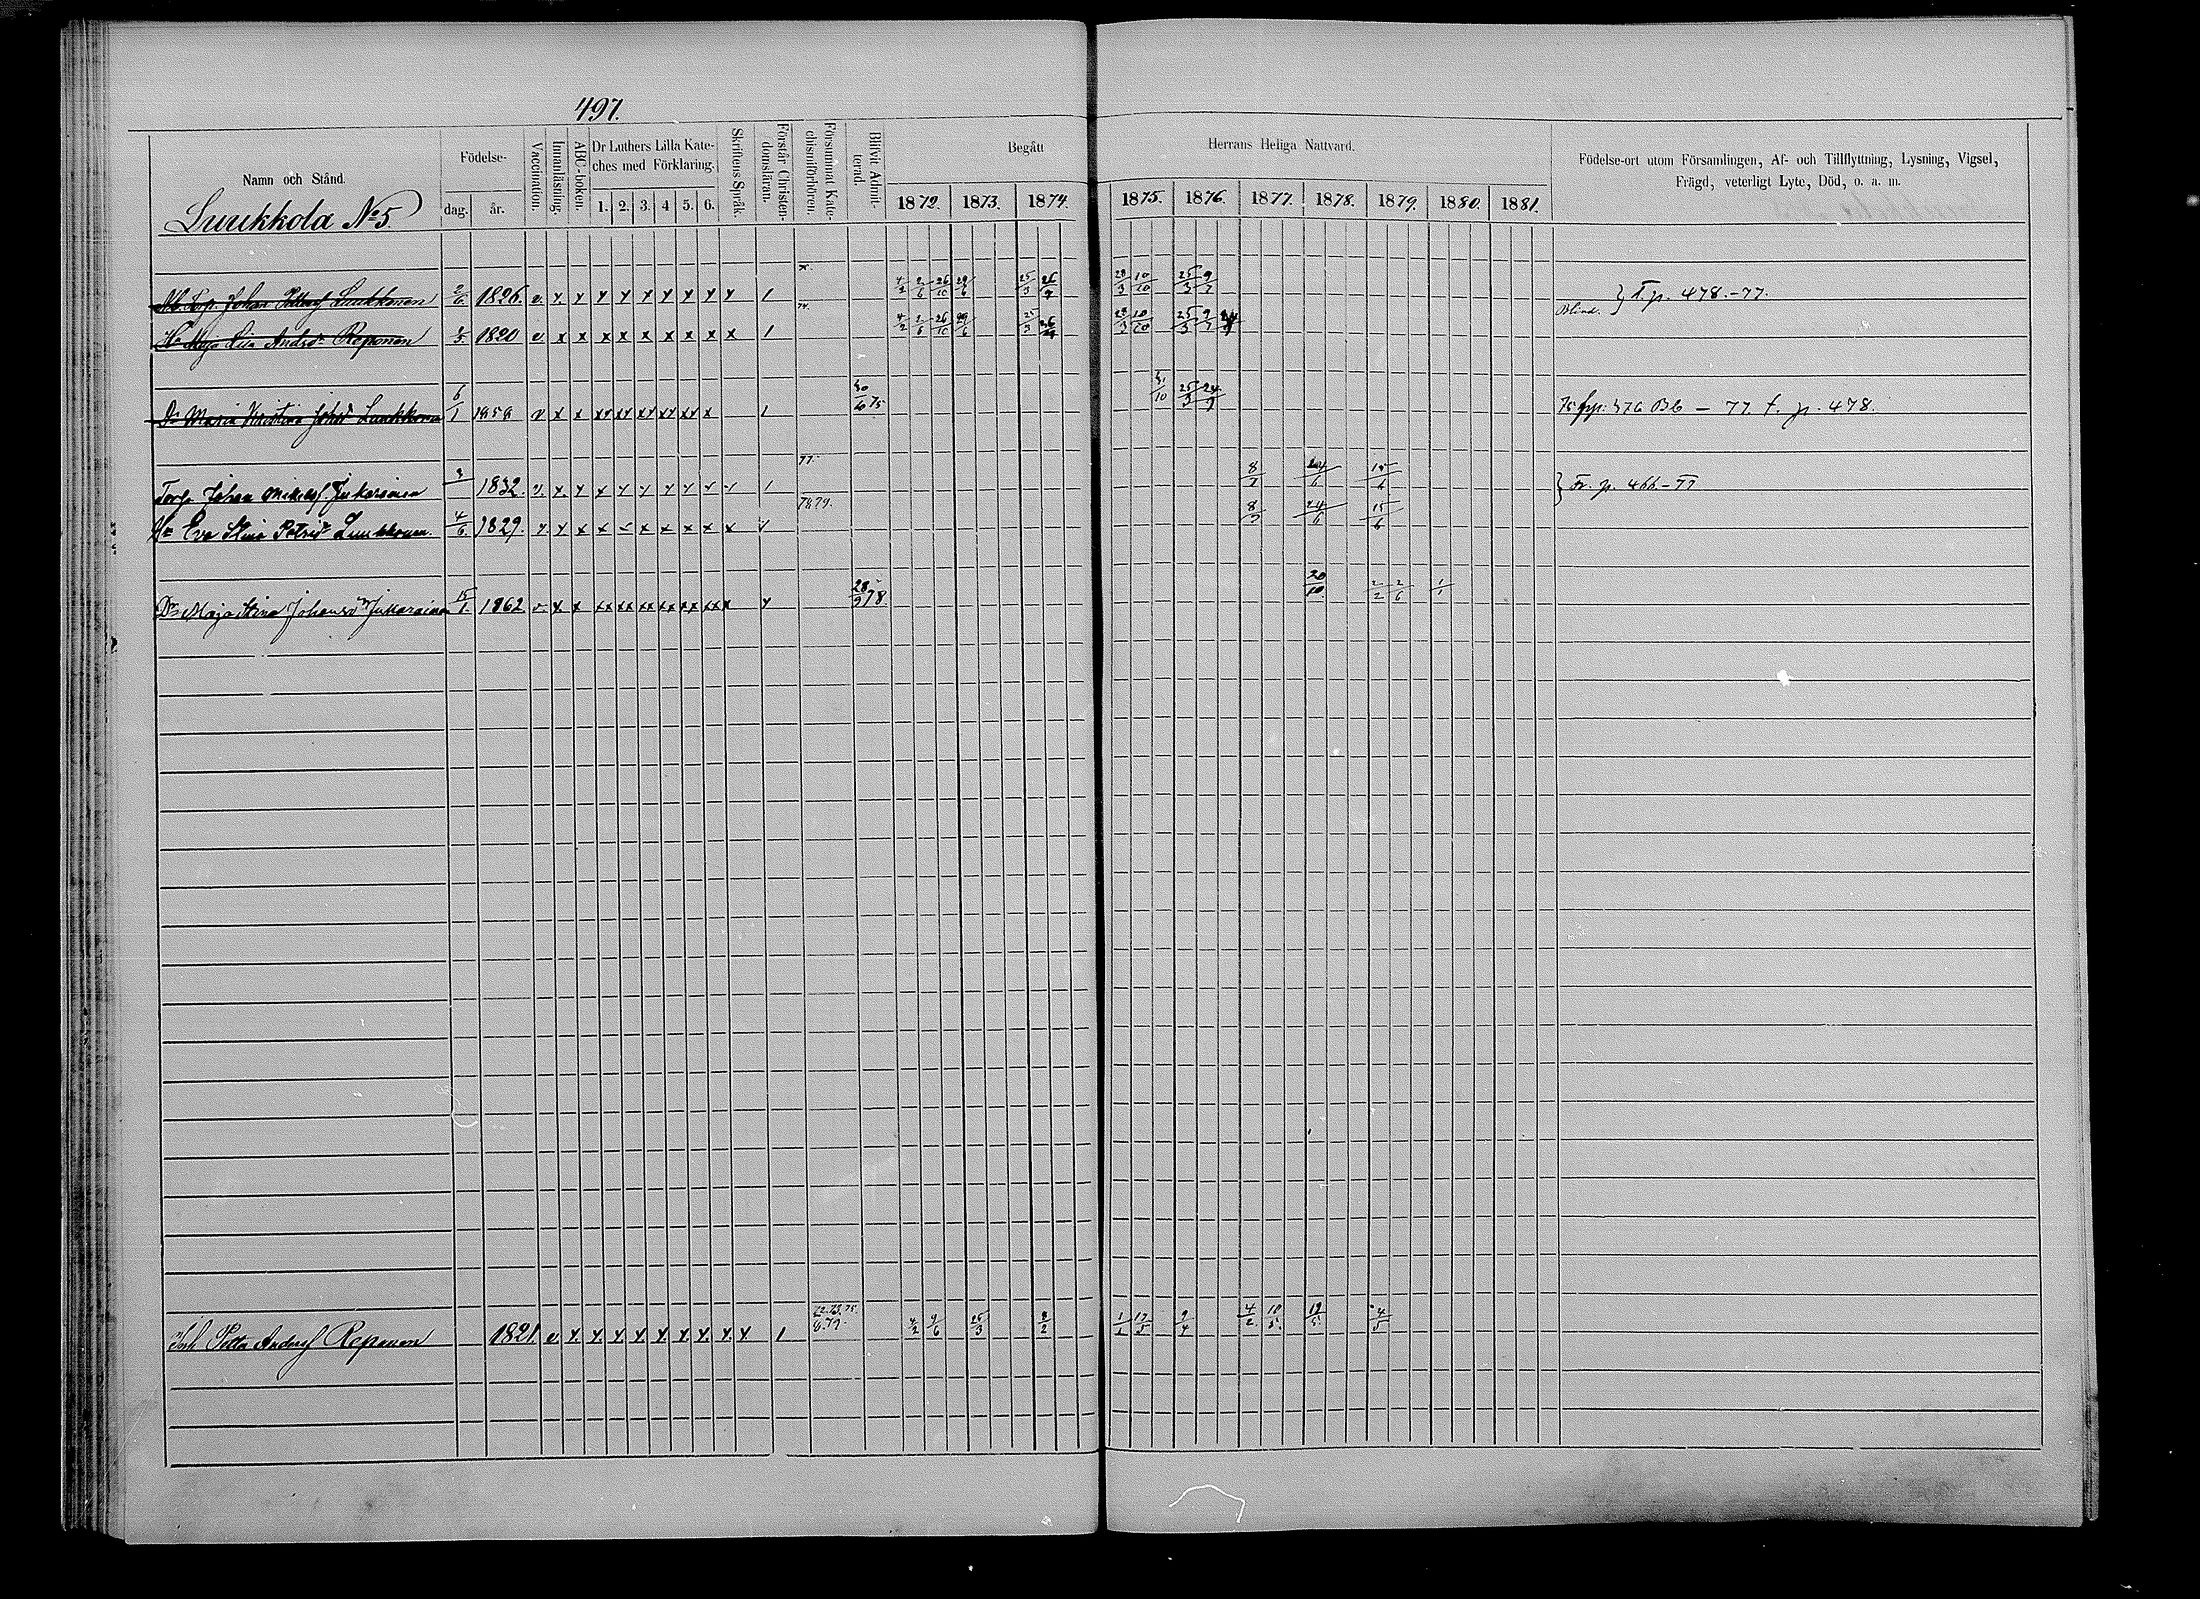 497.
Namn och Stånd.
Luukkola No 5.
Födelse-
dag. år.
Vaccination.
Innanläsning.
ABC-boken.
Dr Luthers Lilla Kate-
ches med Förklaring.
1. 2. 3. 4 5. 6.
Skriftens Språk.
Förstår Christen-
domsläran.
Försummat Kate-
chismiförhören.
Blifvit Admit-
terad.
Begått
1872. 1873. 1874.
Herrans Heliga Nattvard.
1875. 1876. 1877. 1878. 1879. 1880. 1881.
Födelse-ort utom Församlingen, Af- och Tillflyttning, Lysning, Vigsel,
Frägd, veterligt Lyte, Död, o. a. m.
Torp. Johan Luukkonen 2/6 1826. v. x. x x x x x x x x 1 4/2 2/6 26/10 29/6 25/3 28/3 10/10 25/3 9/7 } T. p. 478.-77.
Hu Maja Lisa Andrsdr Reponen 1820 v. x x x x x x x x x 1 74. 4/2 2/6 26/10 29/6 25/3 28/3 10/10 25/3 9/7 Blind.
Dr Maria Kristina Johsdr Luukkonen 6/1 1859 v x x xx xx xx xx xx x 1 75 25/3 24/9 376 - 77 t. p. 478.
Torp. Johan Jukarainen 1832. v. x. x x x x x x x 1 77. 8/7 24/6 15/6 } Fr. p. 466-77
Hu Eva Stina Petrsdr Luukkonen. 4/6 1829. 78.79. 8/7 24/6 15/6
Dr Maja Stina Johansdr Jukarainen 15/1 1862 x x xx xx xx xx xx xx x 28/9 78. 20/10 2/2 2/6 1/1
Inh Petter Andersf Reponen 1821. v. x. x. x. x. x. x. x. x. x 1 72.73.75. 4/2 9/6 25/3 2/2 17/5 2/4 4/2 19/5 4/5